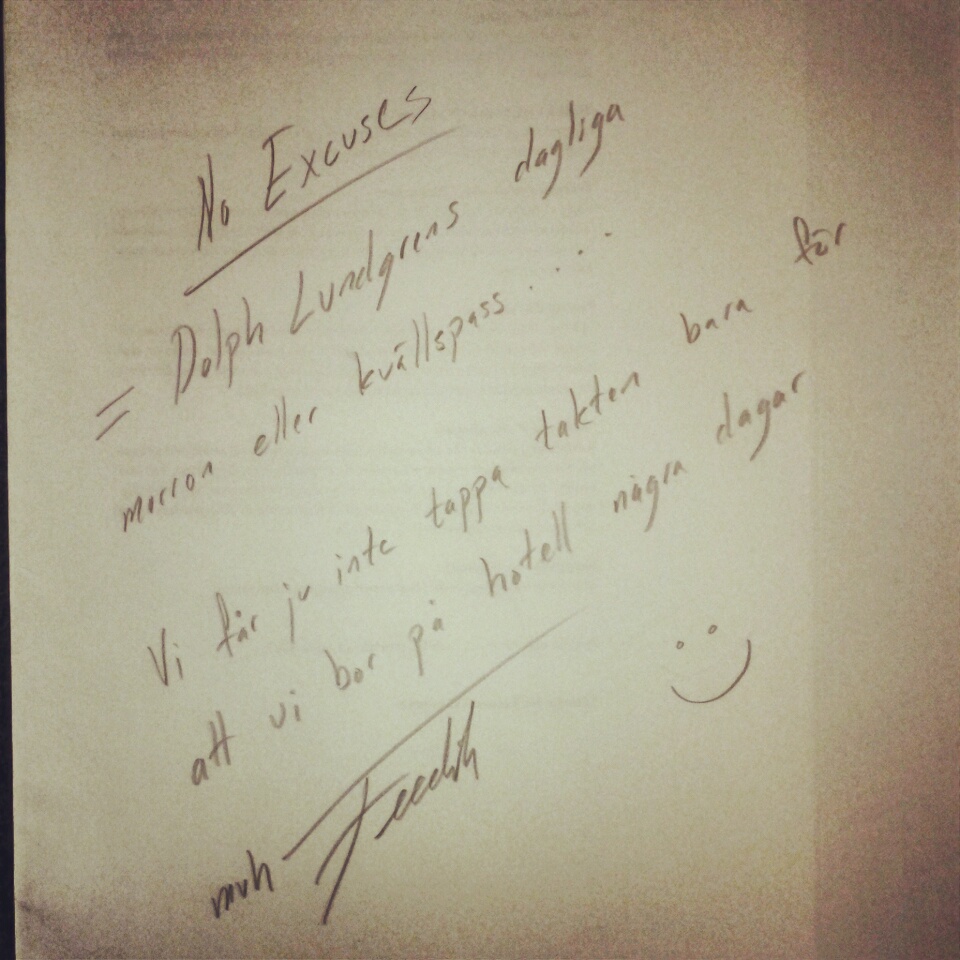 No Excuses
= Dolph Lundgrens dagliga
morron eller kvällspass....
Vi får ju inte tappa takten bara för
att vi bor på hotell några dagar
mvh